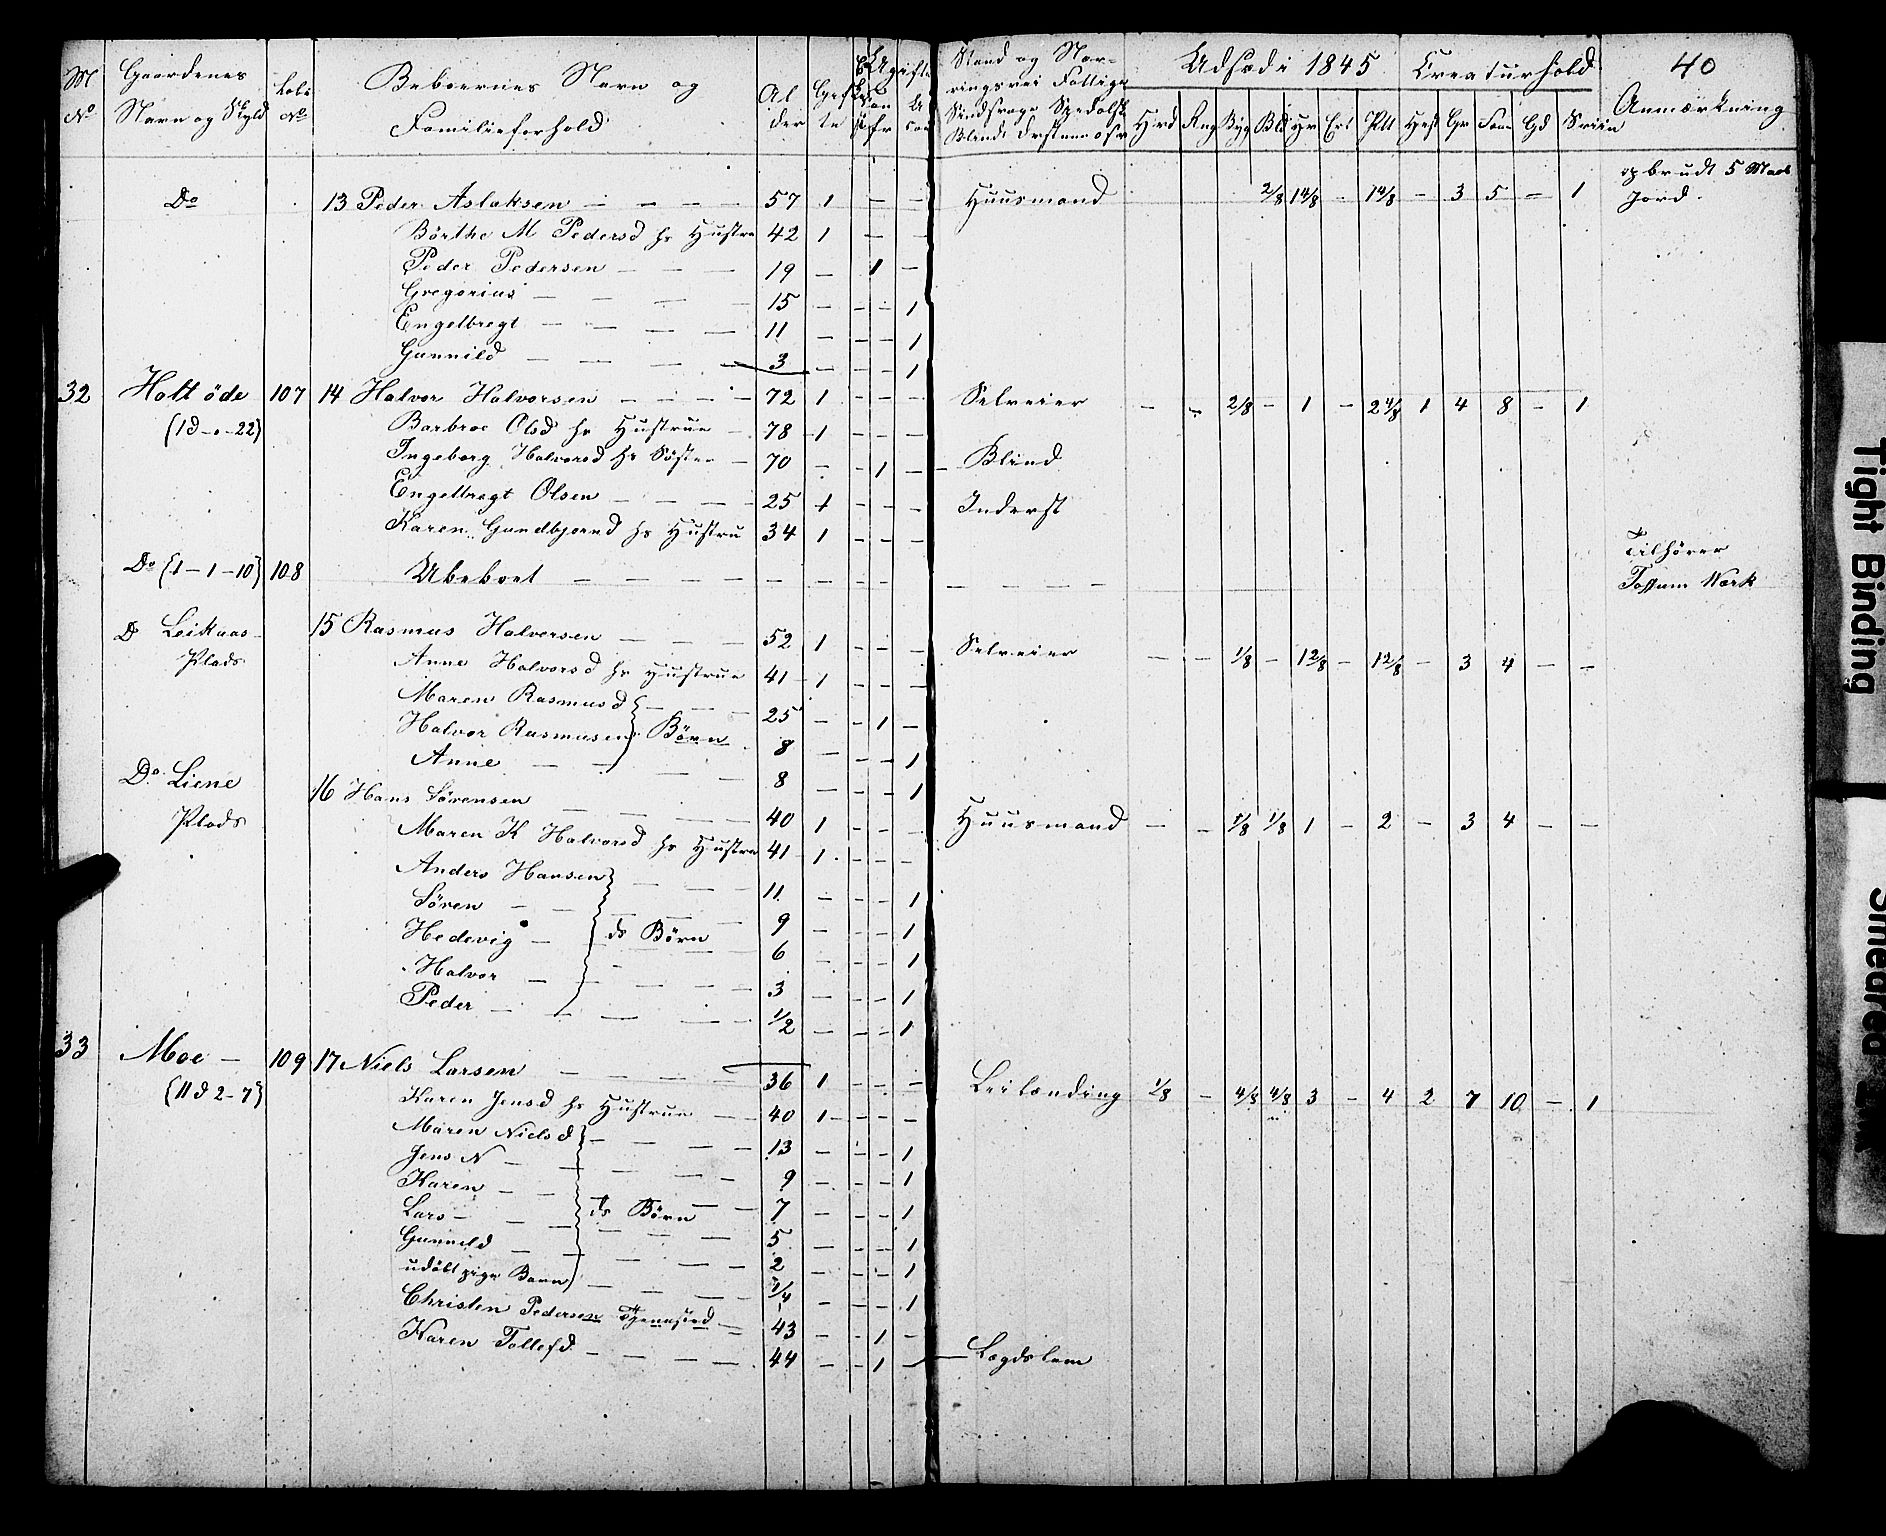 M No | Gaardenes Navn og Skyld | Løbe No | Beboernes Navn og Familieforhold | Al der | Gif te | Ugifte | Stand og Nær- ringsvei Fattige Sindsvage Spedalsk Blinde | Udsæd i 1845 | Creaturhold | 40 Anmærkning
Hvd Rug Byg Bl Hv Ert Ptt | Hest Gr Faar Gd Sviin
opbrudt 5 Maal
Do 13 Peder Aslaksen — — — — 57 1 — — Huusmand 2/8 14/8 — 14/8 — 3 5 — 1 Jord.
Börthe M Pedersd hs Hustru 42 1 — —
Peder Pedersen — — — 19 — 1 —
Gregorius — — — — 15 — — — 1
Engelbregt — — — — 11 — — — 1
Gunnild — — — 3 — — — 1
32 Holt öde 107 14 Halvor Halvorsen — — — — 72 1 — — — Selveier — — 2/8 — 1 — 2 4/8 1 4 8 — 1
{1d - " - 22} Barbroe Olsd hs Hustrue — 78 1 — — —
Ingeborg Halvorsd hs Söster — 70 — — 1 — — Blind
Engelbregt Olsen — — — — 25 1 — — — Inderst
Karen Gundbjornd hs Hustru 34 1 — — —
Tilhører
Do {1-1-10} 108 Ubeboet — — — — — — — — — — — — — Fossum Værk
Do Leikaas- 15 Rasmus Halvorsen — — — 52 1 — — — Selveier — — 1/8 — 12/8 — 12/8 — 3 4 — —
Plads
Anne Halvorsd hs Hustrue 41 1 — — —
Maren Rasmusd — — — 25 — — 1 —
Halvor Rasmusen } Börn — 8 — — — 1
Anne — — — — 8 — — — 1
Do Liene 16 Hans Sörensen — — — — 40 1 — — — Huusmand — — 1/8 1/8 1 — 2 — 3 4 — —
Plads
Maren K Halvorsd hs Hustru 41 1 — — —
Anders Hansen — — — 11 — — — 1
Sören — — — — 9 — — — 1
Hedevig — } ds Börn — 6 — — — 1
Halvor — — — — 3 — — — 1
Peder — — — — 1/2 — — — 1
33 Moe — 109 17 Niels Larsen — — — — 36 1 — — — Leilænding 1/8 — 4/8 4/8 3 — 4 2 7 10 — 1
{11d 2-7} Karen Jensd hs Hustrue — 40 1 — — —
Maren Nielsd — — — — 13 — — — 1
Jens N — — — — 9 — — — 1
Karen — — — — 7 — — — 1
Lars — — } ds Börn — 5 — — — 1
Gunneld — — — — 2 — — — 1
udöbt pige Barn — — — 1/4 — — — 1
Christen Pedersen — 43 — — 1 —
Karen Tollefd — — — — 44 — — 1 — — Lægdslem
Tight Binding
Smeared